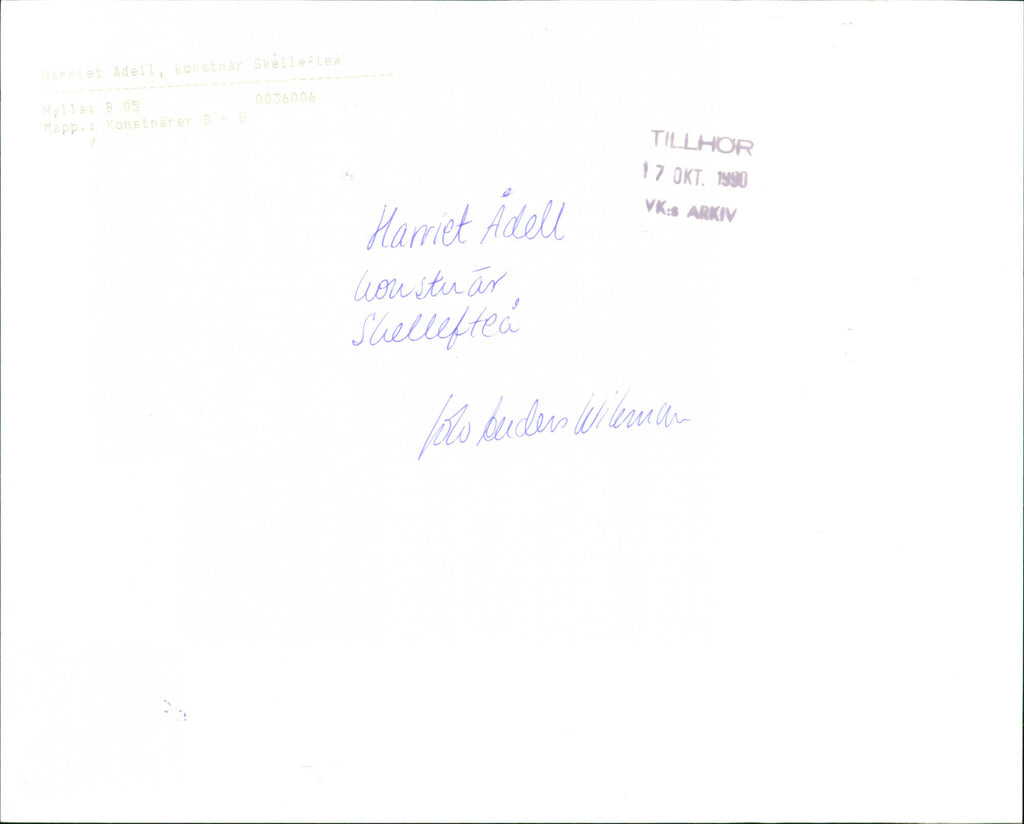 Harriet Ådell, konstnär Skellefteå
Hylla: B 05 0036006
Mapp.: Konstnärer
TILLHÖR
17 OKT. 1990
VK:s ARKIV
Harriet Ådell
konstnär
Skellefteå
foto Anders Wikman